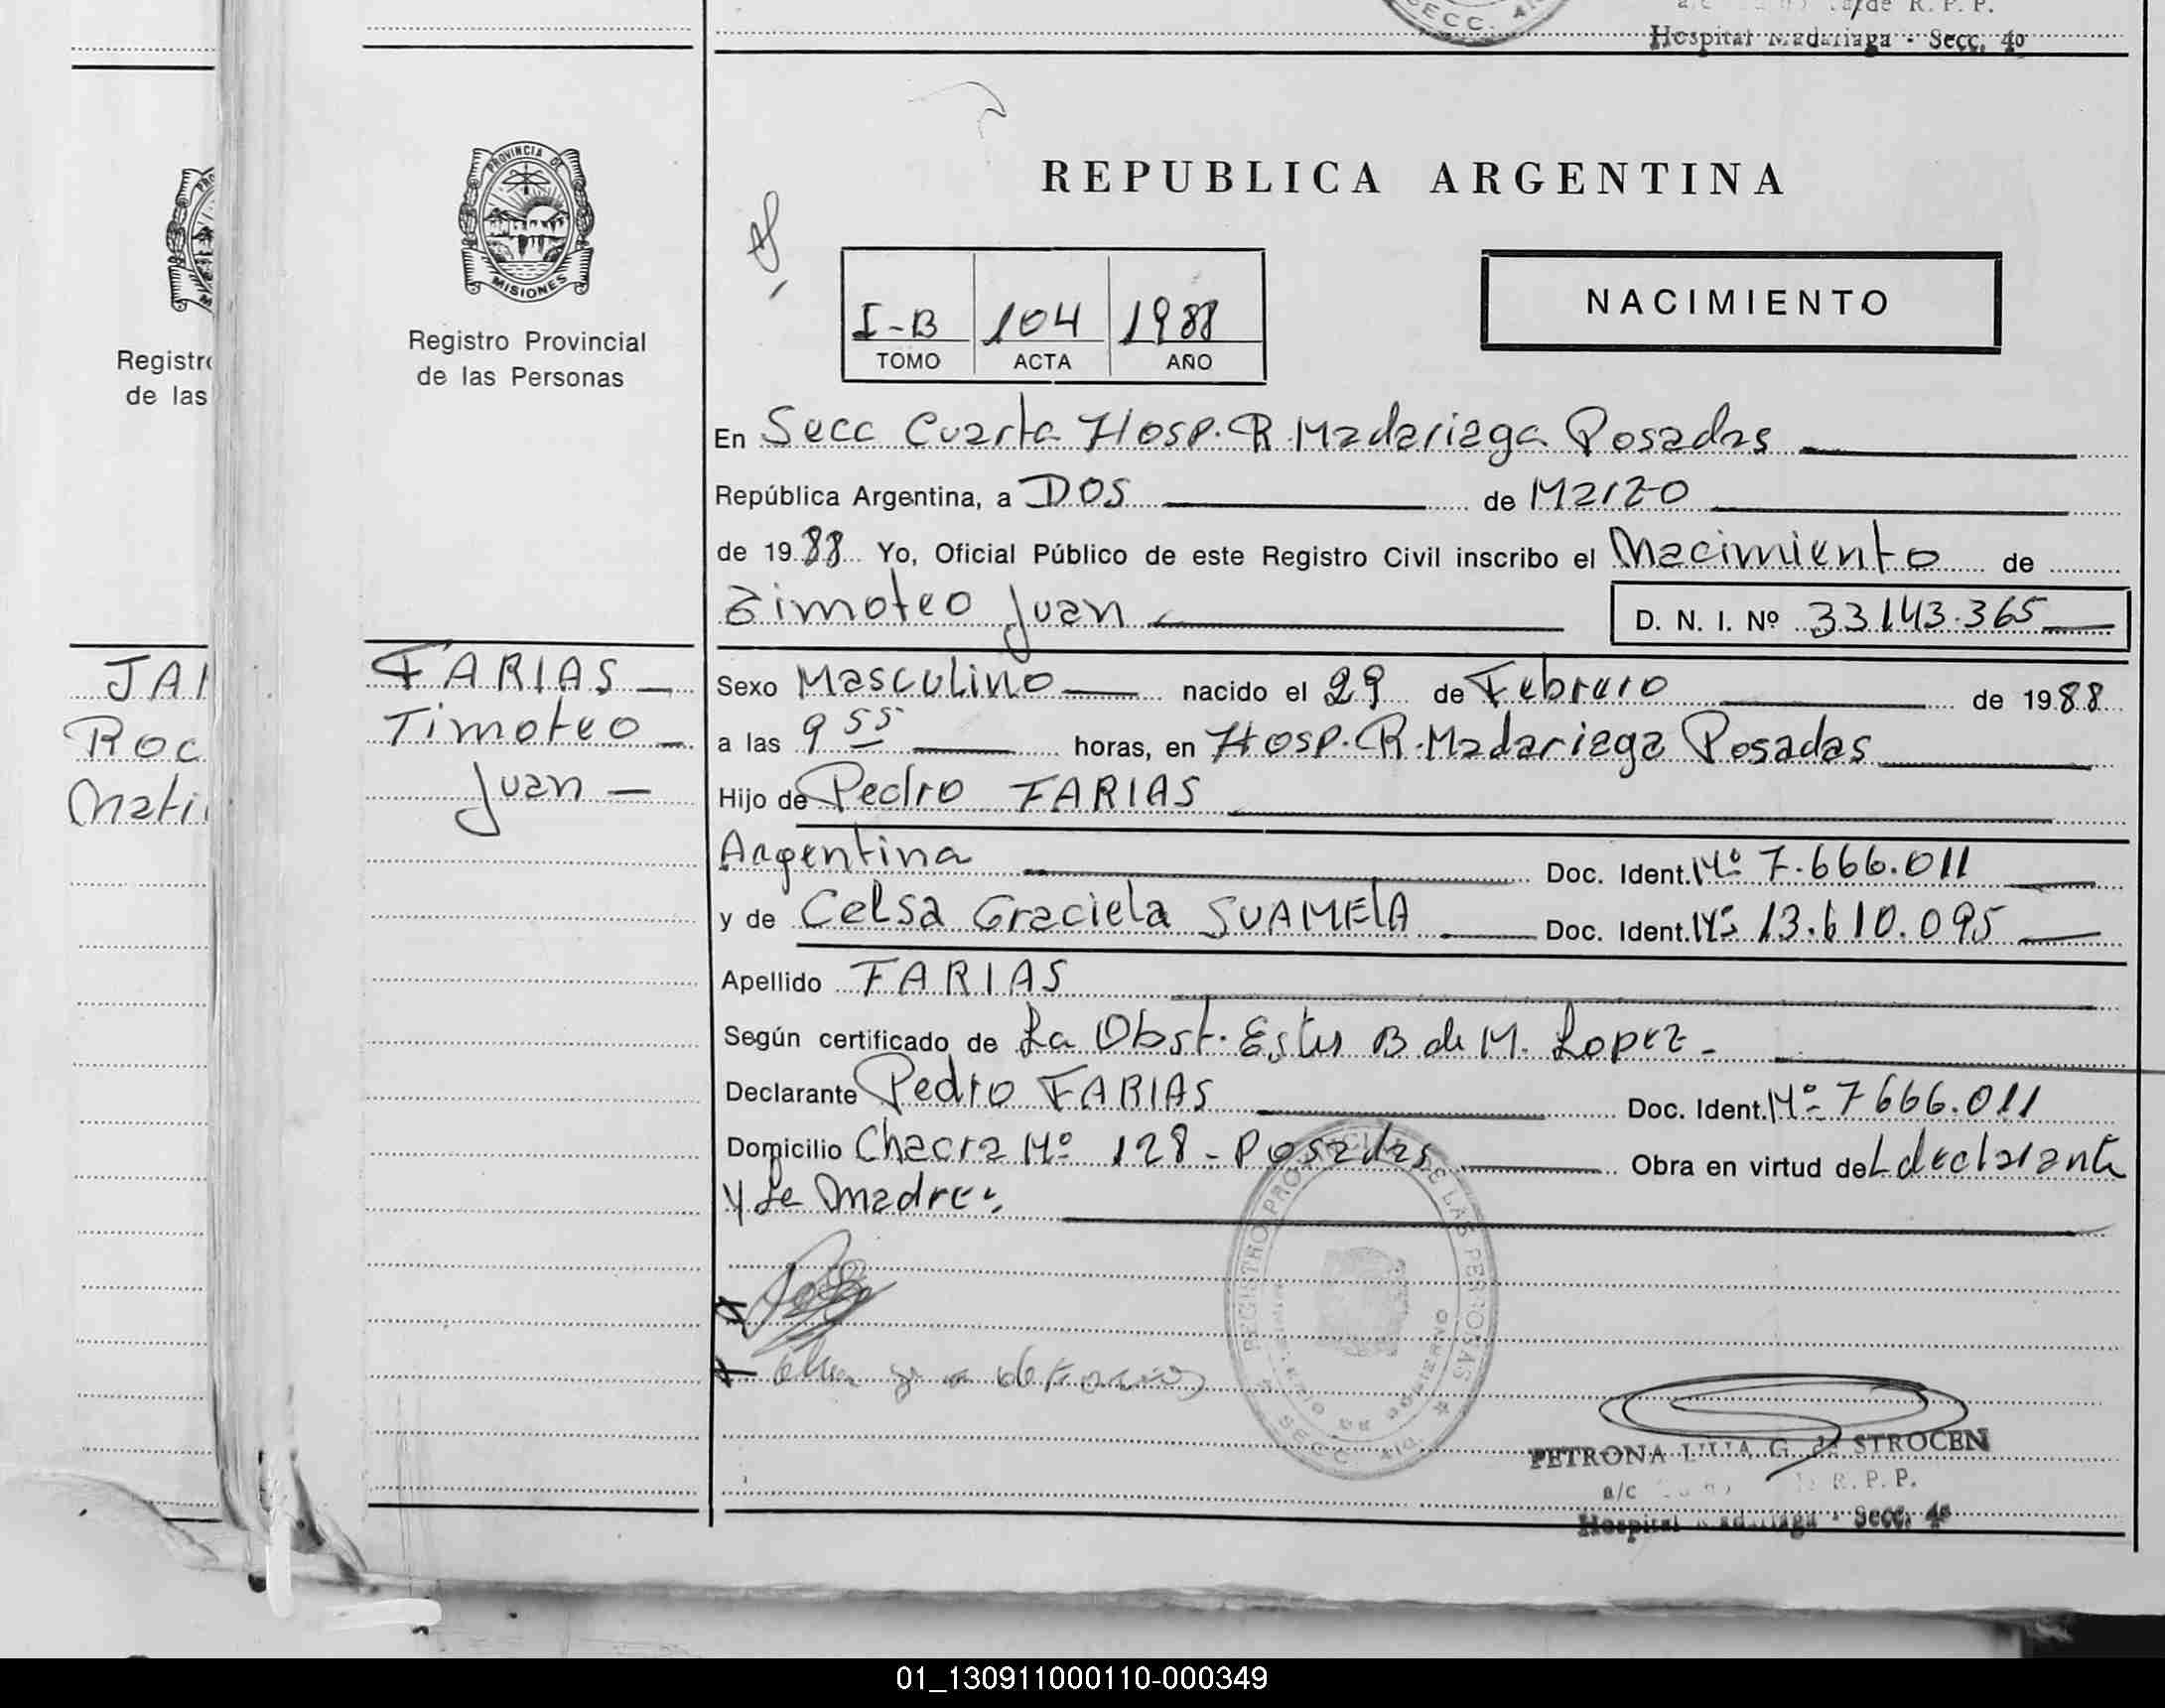 SECC.
R. P. P.
Hospital Madariaga - Secc. 4º
PROVINCIA DE
MISIONES
Registro Provincial
de las Personas
Registr
de las
REPUBLICA ARGENTINA
NACIMIENTO
I-B 104 1988
TOMO ACTA AÑO
En Secc Cuarta Hosp. R. Madariaga Posadas
República Argentina, a Dos de Marzo
de 1988 Yo, Oficial Público de este Registro Civil inscribo el Nacimiento de
Timoteo Juan D. N. I. Nº 33143.365
JA
Roc
Mati
FARIAS
Timoteo
Juan
Sexo Masculino nacido el 29 de Febrero de 1988
a las 9 55 horas, en Hosp. R. Madariaga Posadas
Hijo de Pedro FARIAS
Argentina Doc. Ident. Nº 7.666.011
y de Celsa Graciela SUAMELA Doc. Ident. Nº 13.610.095
Apellido FARIAS
Según certificado de La Obst. Ester B de M. Lopez.-
Declarante Pedro FARIAS Doc. Ident. Nº 7666.011
Domicilio Chacra Nº 128 - Posadas Obra en virtud del declarante
y la Madre.
REGISTRO PROVINCIAL DE LAS PERSONAS
SECC. 4ta
GOBIERNO
PETRONA G. de STROCEN
a/c R. P. P.
Hospital Madariaga - Secc. 4º
01_130911000110-000349